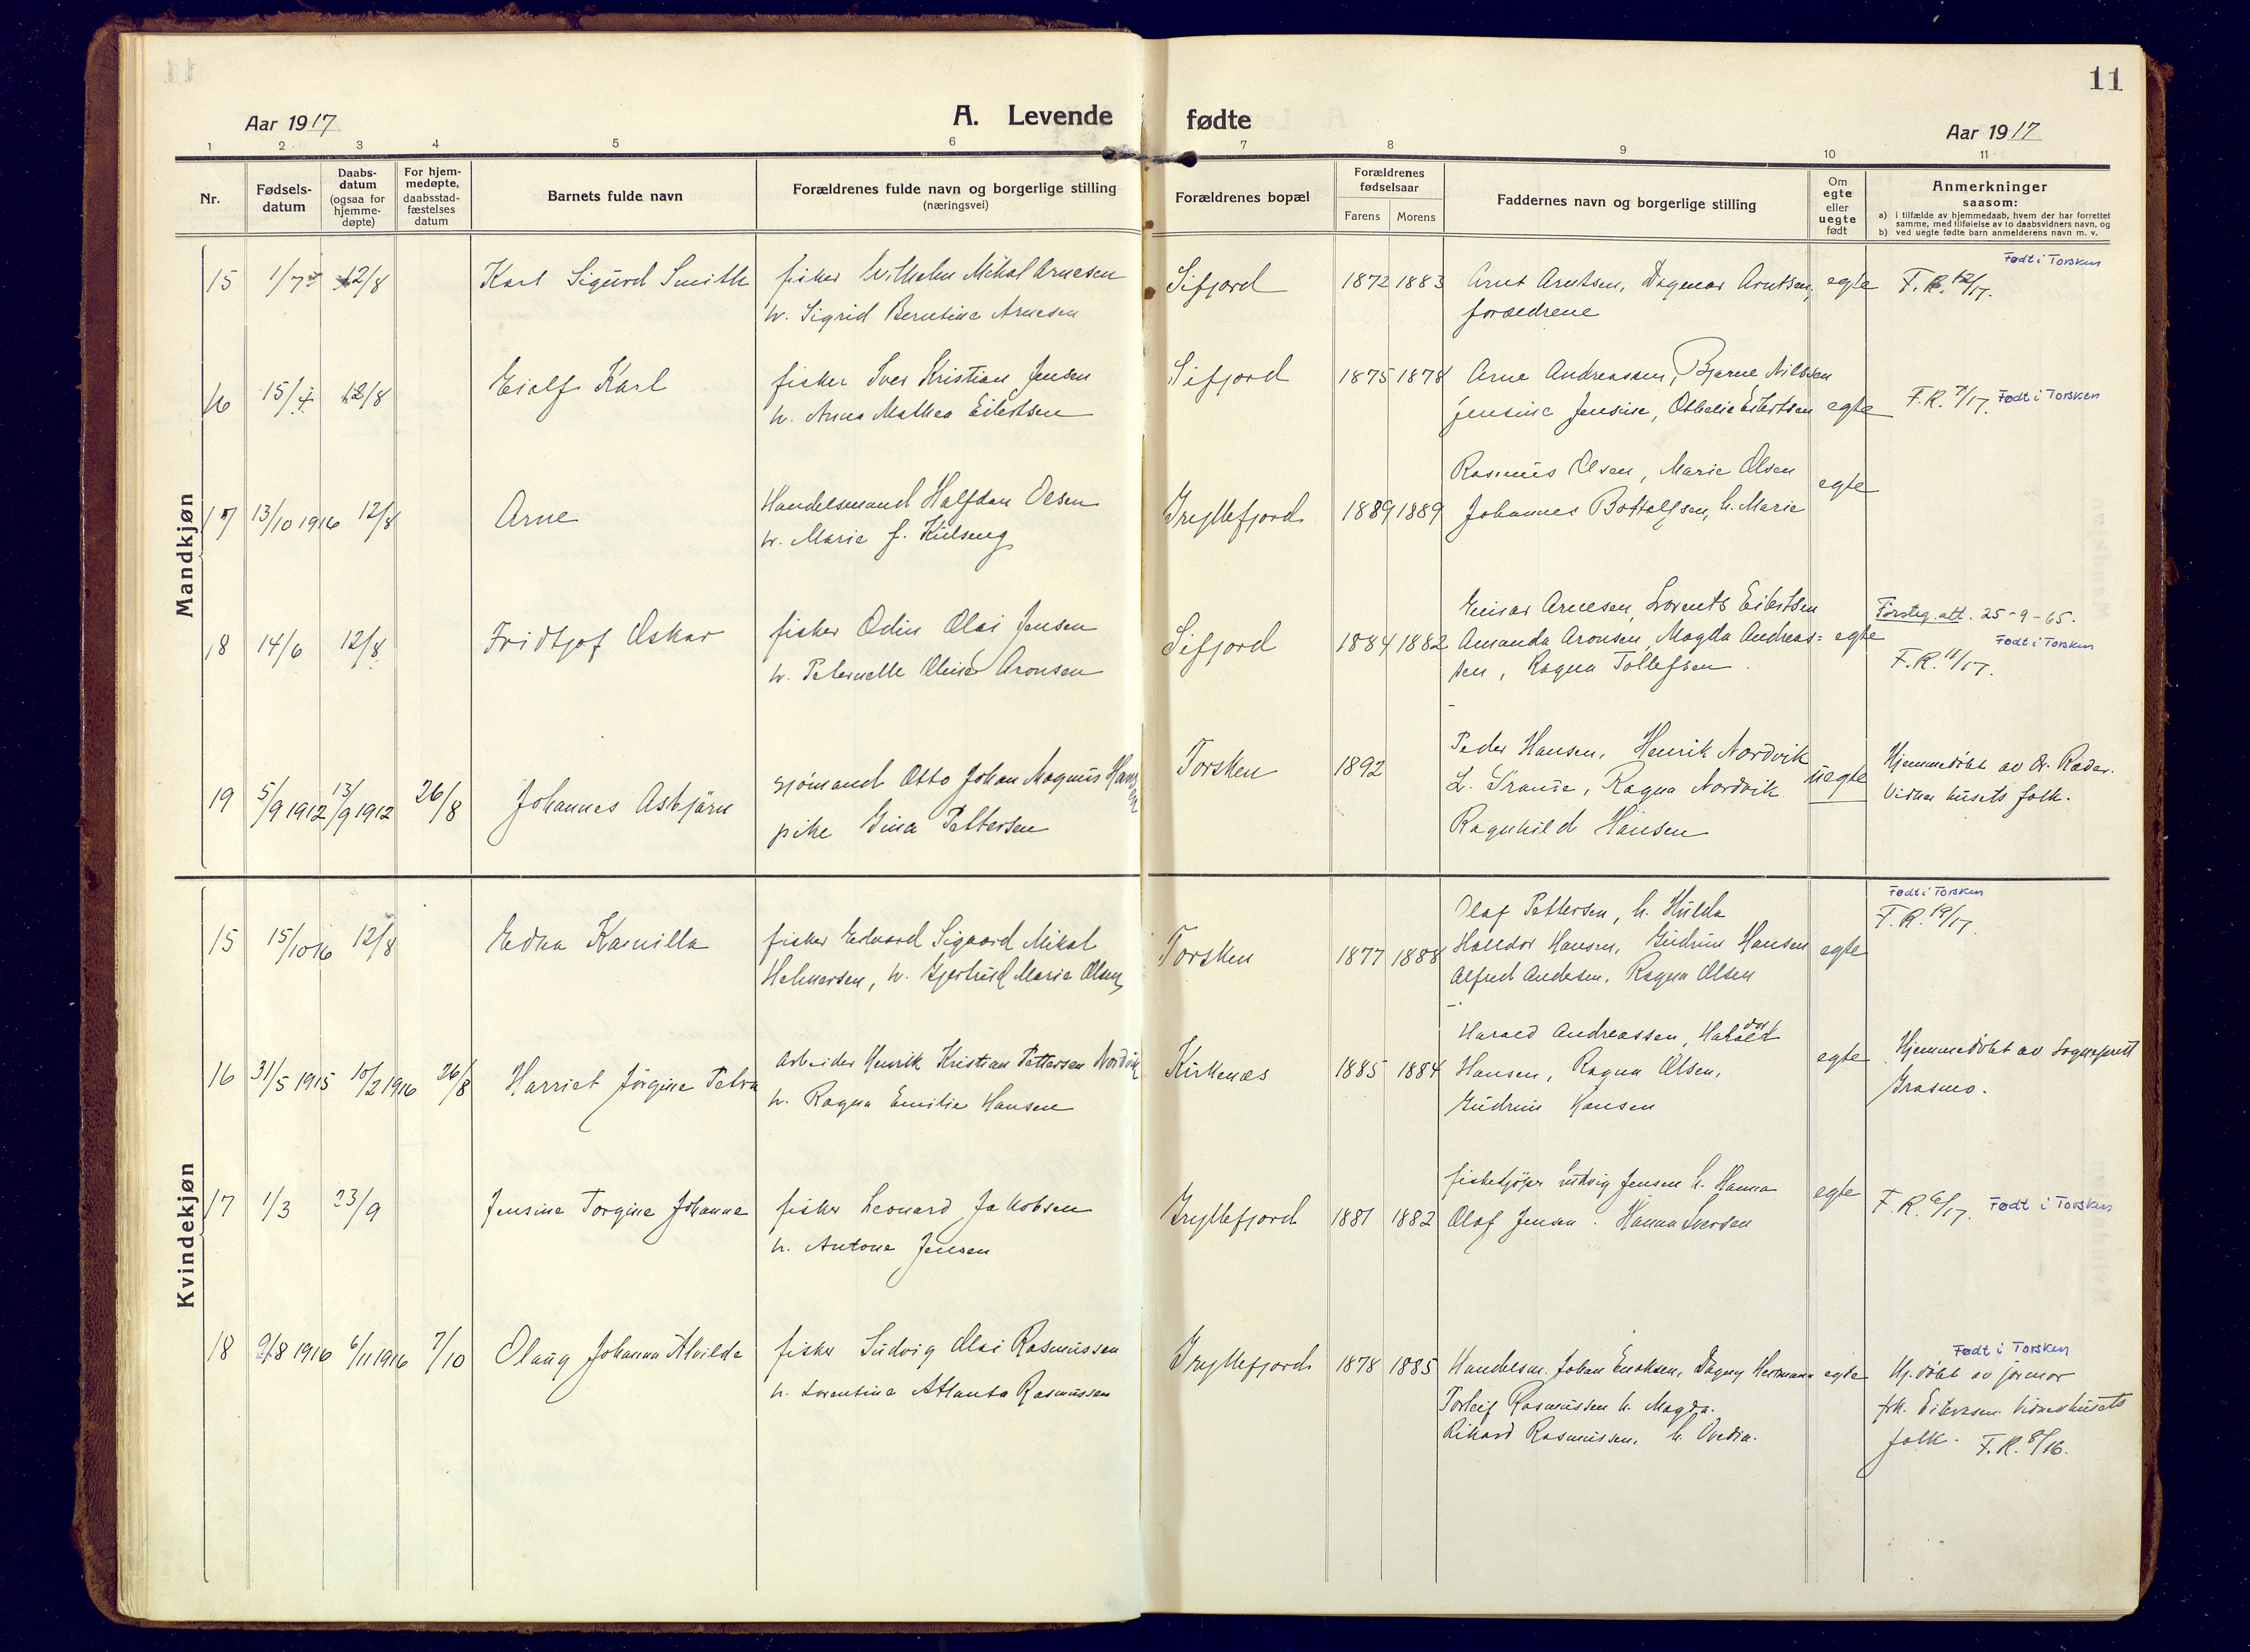 11
Aar 1917
A. Levende fødte
Aar 1917
1 2 3 4 5 6 7 8 9 10 11
Nr.
Fødsels-
datum
Daabs-
datum
(ogsaa for
hjemme-
døpte)
For hjem-
medøpte,
daabsstad-
fæstelses
datum
Barnets fulde navn
Forældrenes fulde navn og borgerlige stilling
(næringsvei)
Forældrenes bopæl
Forældrenes
fødselsaar
Farens Morens
Faddernes navn og borgerlige stilling
Om
egte
eller
uegte
født
Anmerkninger
saasom:
a) i tilfælde av hjemmedaab, hvem der har forrettet
samme, med tilføielse av to daabsvidners navn, og
b) ved uegte fødte barn anmelderens navn m. v.
Mandkjøn
Født i Torsken
15 1/7 12/8 Karl Sigurd Smith fisker Wilhelm Mikal Arnesen Sifjord 1872 1883 Arnt Arntsen, Dagmar Arntsen, egte F.R. 12/17.
h. Sigrid Berntine Arnesen forældrene
16 15/4 12/8 Eialf Karl fisker Iver Kristian Jensen Sifjord 1875 1878 Arne Andreassen, Bjarne Nilssen
h. Anna Mathea Eilertsen Jensine Jensine, Othelie Eilertsen egte F.R. 7/17. Født i Torsken
Rasmus Olsen, Marie Olsen egte
17 13/10 1916 12/8 Arne Handelsmand Halfdan Olsen Gryllefjord 1889 1889 Johannes Bottolfsen, h. Marie
h. Marie f. Kulseng
Einar Arnesen, Lorents Eilertsen Førsteg. att. 25-9-65.
18 14/6 12/8 Fridtjof Oskar fisker Odin Olai Jensen Sifjord 1884 1882 Amanda Aronsen, Magda Andreas= egte Født i Torsken
h. Peternelle Oline Aronsen sen, Ragna Tollefsen F.R. 11/17.
Peder Hansen, Henrik Nordvik
19 5/9 1912 13/9 1912 26/8 Johannes Asbjørn sjømand Otto Johan Magnus Hansen Torsken 1892 L. Granie, Ragna Nordvik uegte Hjemmedøbt av Dr. Rader.
pike Gina Pettersen Ragnhild Hansen Vidner husets folk.
Kvindekjøn
Olaf Pettersen, h. Hulda Født i Torsken
15 15/10 16 12/8 Edna Kamilla fisker Edvard Sigaard Mikal Torsken 1877 1888 Halldor Hansen, Gudrun Hansen egte F.R. 19/17.
Helmersen, h. Gjertrud Marie Olsen Alfred Andersen, Ragna Olsen
Harald Andreassen, Haldor
16 31/5 1915 10/2 1916 26/8 Harriet Jørgine Petra Arbeider Henrik Kristian Pettersen Nordvik Kirkenæs 1885 1884 Hansen, Ragna Olsen, egte Hjemmedøbt av Sogneprest
h. Ragna Emilie Hansen Gudrun Hansen Grasmo.
17 1/3 23/9 Jensine Torgine Johanne fisker Leonard Jakobsen Gryllefjord 1881 1882 fiskekjøper Ludvig Jensen h. Hanna egte F.R. 6/17. Født i Torsken
h. Antone Jensen Olaf Jensen. Hanna Iversen
Født i Torsken
18 9/8 1916 6/11 1916 7/10 Olaug Johanna Alvilde fisker Ludvig Olai Rasmussen Gryllefjord 1878 1885 Handelsm. Johan Enoksen, Dagny Hermann egte Hj. døbt av jormor
h. Lorentine Atlanta Rasmussen Torleif Rasmussen h. Magda. frk. Eilertsen. Vidner husets
Rikard Rasmussen, h. Ovedia. folk. F.R. 8/16.